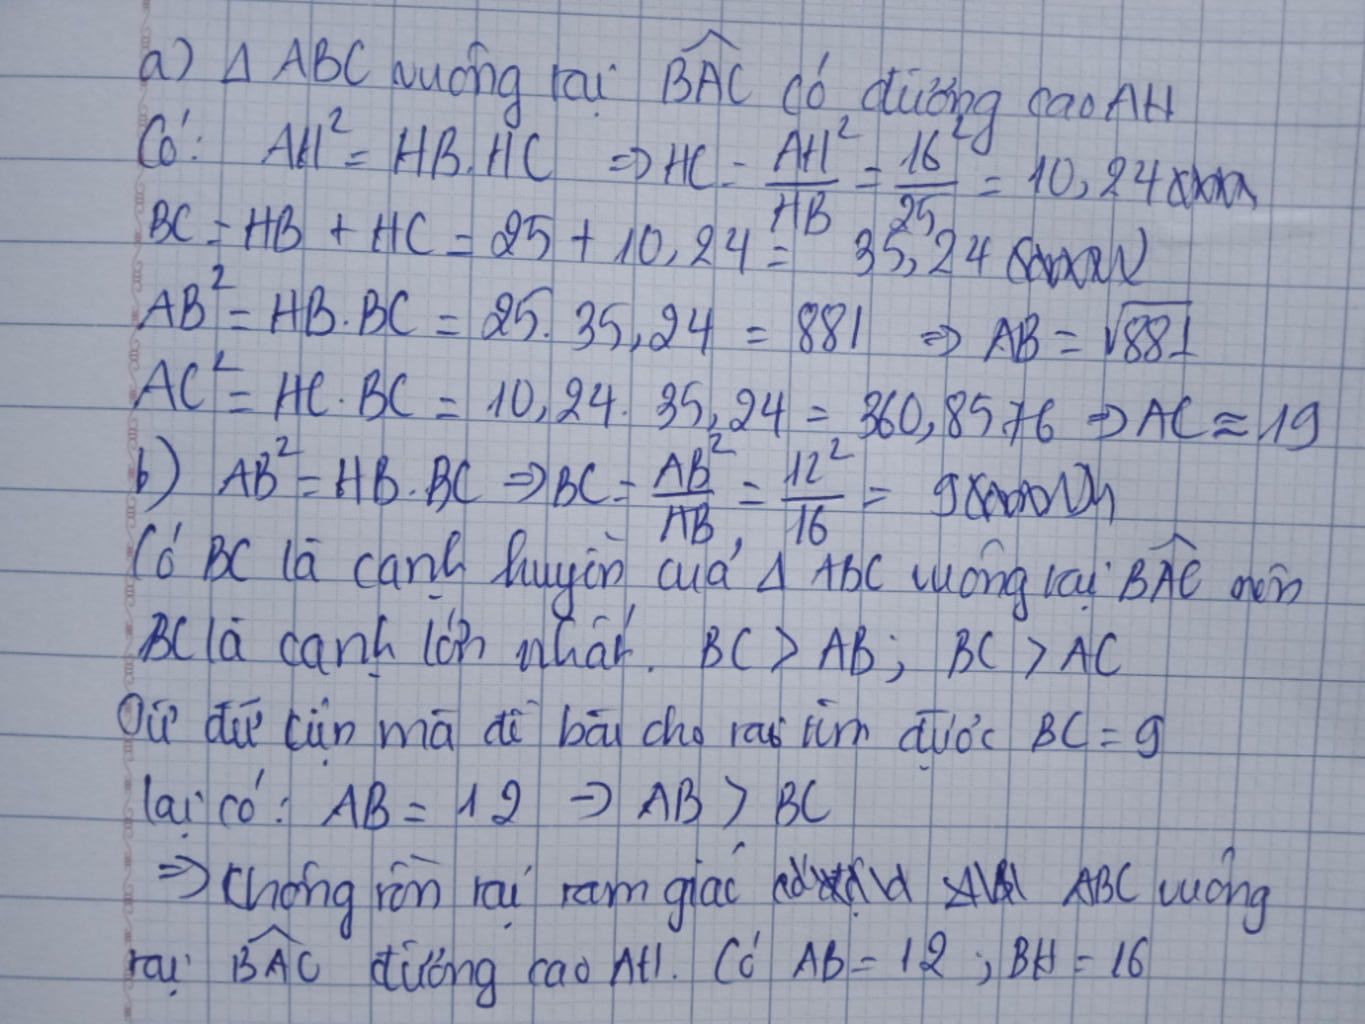 a) Δ ABC vuông tại BAC có đường cao AH
Có: AH² = HB.HC => HC = AH²/HB = 16²/25 = 10,24
BC = HB + HC = 25 + 10,24 = 35,24
AB² = HB.BC = 25. 35,24 = 881 => AB = √881
AC² = HC.BC = 10,24. 35,24 = 360,8576 => AC ≈ 19
b) AB² = HB.BC => BC = AB²/HB = 12²/16 = 9
Có BC là cạnh huyền của Δ ABC vuông tại BAC nên
BC là cạnh lớn nhất. BC > AB; BC > AC
Từ dữ kiện mà đề bài cho ta tìm được BC = 9
lại có: AB = 12 => AB > BC
=> không tồn tại tam giác ABC vuông
tại BAC đường cao AH. Có AB = 12; BH = 16